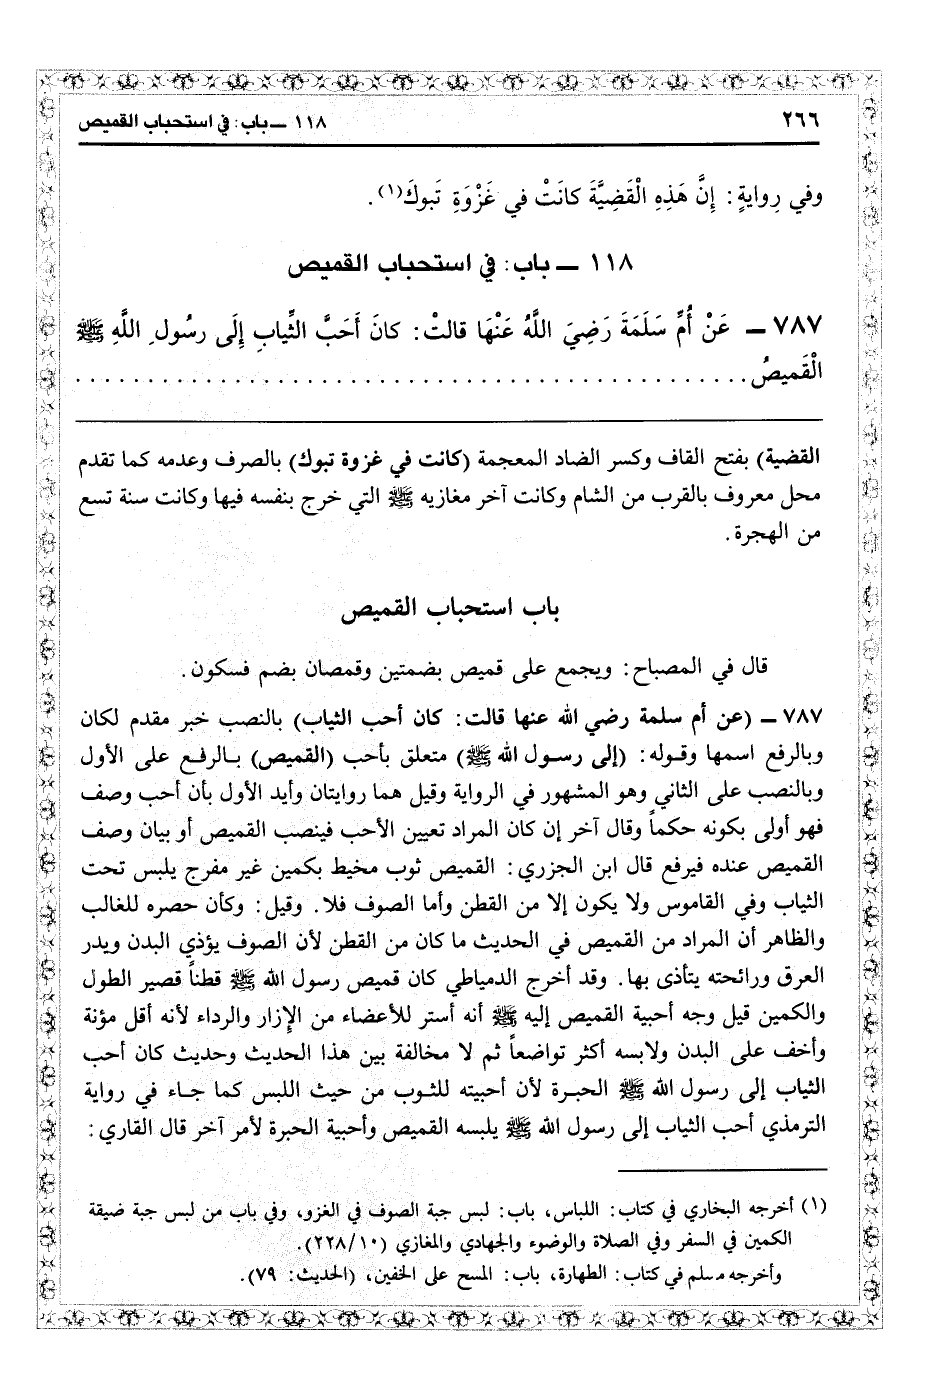 ٢٦٦ ١١٨ ــ باب: في استحباب القميص
وفي رِوايةٍ: إِنَّ هَذِهِ الْقَضِيَّةَ كانَتْ في غَزْوَةِ تَبوكَ(١).
١١٨ ــ باب: في استحباب القميص
٧٨٧ ــ عَنْ أُمِّ سَلَمَةَ رَضِيَ اللَّهُ عَنْهَا قالتْ: كانَ أَحَبَّ الثِّيابِ إِلَى رسُولِ اللَّهِ ﷺ
الْقَميصُ. . . . . . . . . . . . . . . . . . . . . . . . . . . . . . . . . . . . . . . . . . . . . .
القضية) بفتح القاف وكسر الضاد المعجمة (كانت في غزوة تبوك) بالصرف وعدمه كما تقدم
محل معروف بالقرب من الشام وكانت آخر مغازيه ﷺ التي خرج بنفسه فيها وكانت سنة تسع
من الهجرة.
باب استحباب القميص
قال في المصباح: ويجمع على قميص بضمتين وقمصان بضم فسكون.
٧٨٧ ــ (عن أم سلمة رضي الله عنها قالت: كان أحب الثياب) بالنصب خبر مقدم لكان
وبالرفع اسمها وقوله: (إلى رسول الله ﷺ) متعلق بأحب (القميص) بالرفع على الأول
وبالنصب على الثاني وهو المشهور في الرواية وقيل هما روايتان وأيد الأول بأن أحب وصف
فهو أولى بكونه حكماً وقال آخر إن كان المراد تعيين الأحب فينصب القميص أو بيان وصف
القميص عنده فيرفع قال ابن الجزري: القميص ثوب مخيط بكمين غير مفرج يلبس تحت
الثياب وفي القاموس ولا يكون إلا من القطن وأما الصوف فلا. وقيل: وكأن حصره للغالب
والظاهر أن المراد من القميص في الحديث ما كان من القطن لأن الصوف يؤذي البدن ويدر
العرق ورائحته يتأذى بها. وقد أخرج الدمياطي كان قميص رسول الله ﷺ قطناً قصير الطول
والكمين قيل وجه أحبية القميص إليه ﷺ أنه أستر للأعضاء من الإزار والرداء لأنه أقل مؤنة
وأخف على البدن ولابسه أكثر تواضعاً ثم لا مخالفة بين هذا الحديث وحديث كان أحب
الثياب إلى رسول الله ﷺ الحبرة لأن أحبيته للثوب من حيث اللبس كما جاء في رواية
الترمذي أحب الثياب إلى رسول الله ﷺ يلبسه القميص وأحبية الحبرة لأمر آخر قال القاري:
(١) أخرجه البخاري في كتاب: اللباس، باب: لبس جبة الصوف في الغزو، وفي باب من لبس جبة ضيقة
الكمين في السفر وفي الصلاة والوضوء والجهادي والمغازي (٢٢٨/١٠).
وأخرجه مسلم في كتاب: الطهارة، باب: المسح على الخفين، (الحديث: ٧٩).